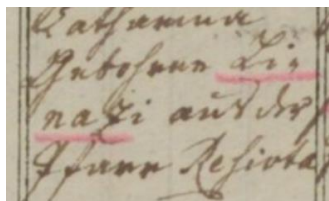 Catharina
Gebohrne Zie
nazi aus der
Pfarr Resivta